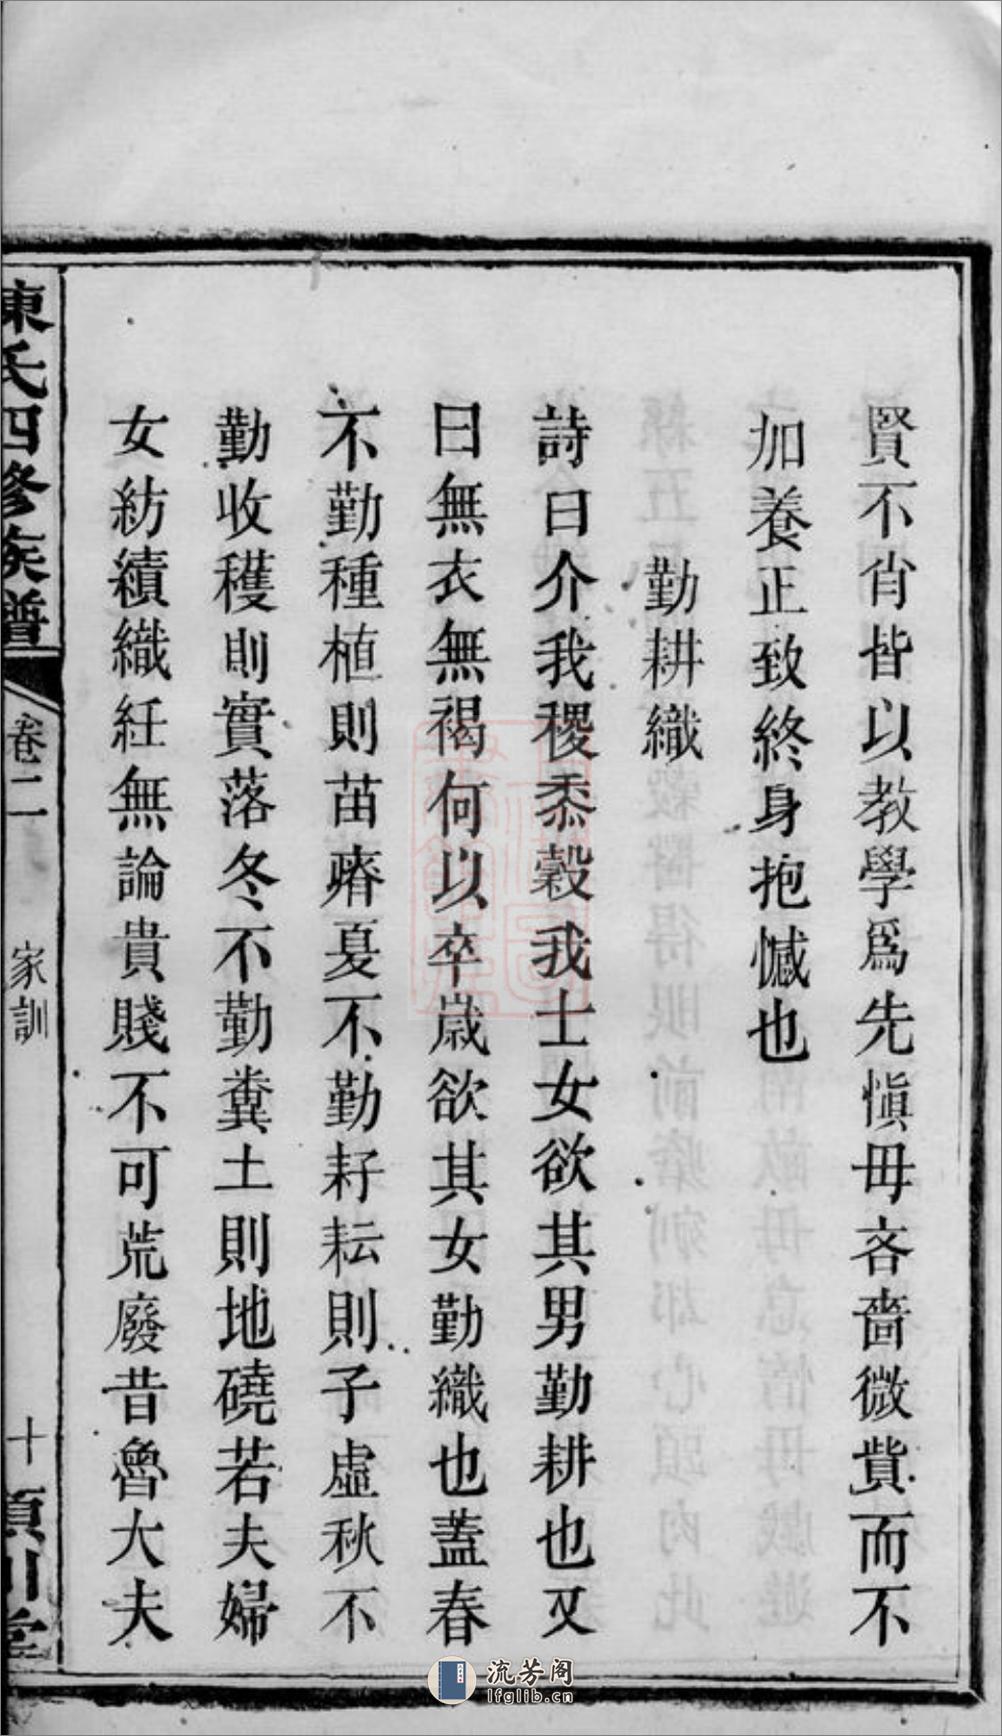 賢不肖皆以教學爲先愼毋吝嗇微貲而不
加養正致終身抱憾也
勤耕織
詩曰介我稷黍穀我士女欲其男勤耕也又
曰無衣無褐何以卒歲欲其女勤織也蓋春
不勤種植則苗瘠夏不勤耔耘則子虛秋不
勤收穫則實落冬不勤糞土則地磽若夫婦
女紡績織紝無論貴賤不可荒廢昔魯大夫
陳氏四修族譜
卷二
家訓
十
潁川堂
流芳阁
lfglib.cn